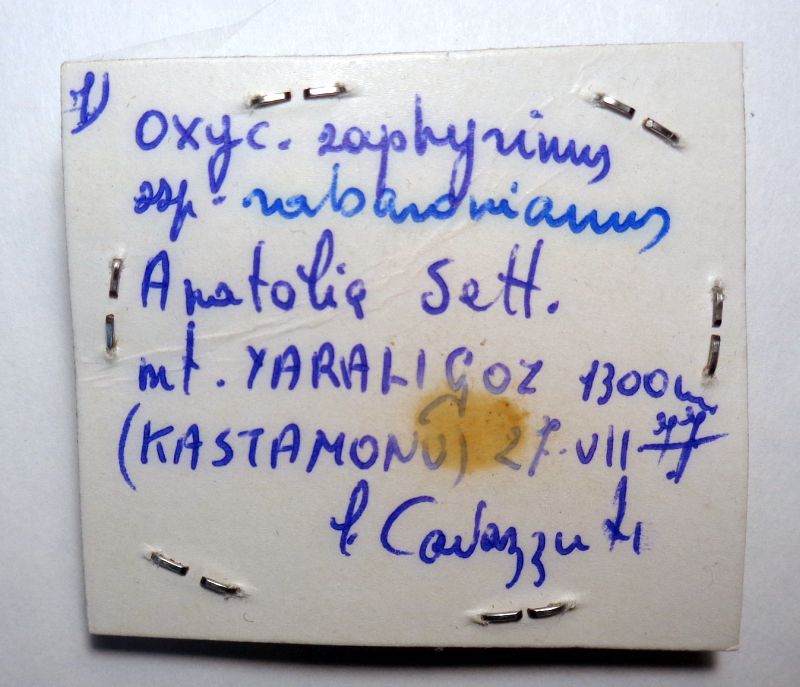 1)
Oxyc. saphyrinus
ssp. rabaronianus
Anatolia Sett.
mt. YARALIGOZ 1300m
(KASTAMONU) 27.VII
l. Cavazzuti